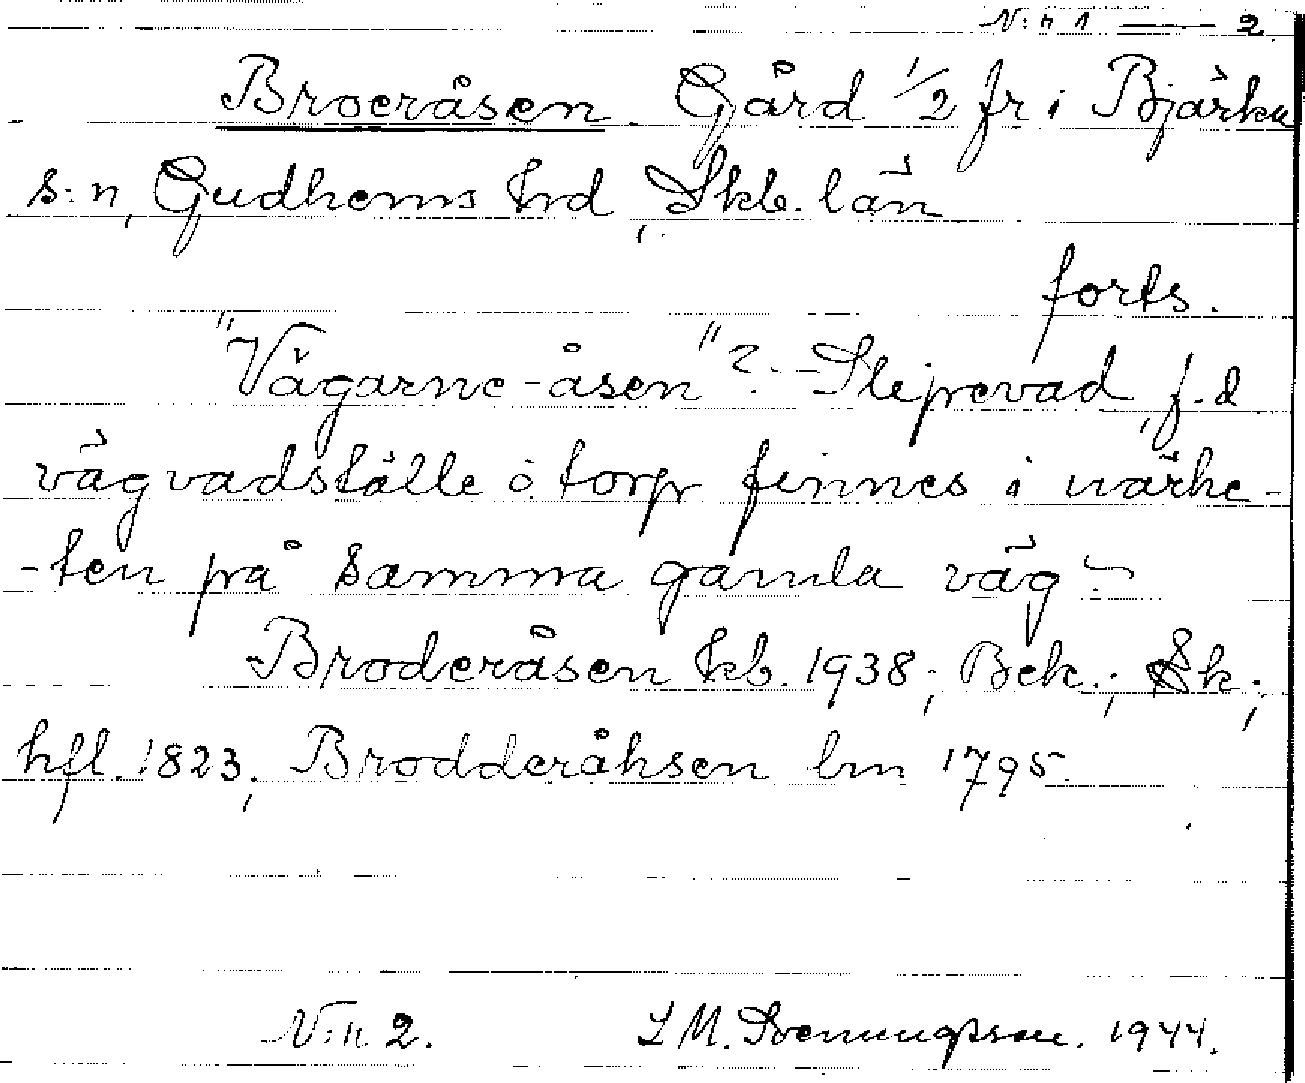 N:r 1 — 2.
Broeråsen. Gård 1/2 fr i Bjärka
s:n, Gudhems hrd, Skb. län
forts.
"Vägarne-åsen"? - Slejprevad, f.d
vägvadställe o. torp finnes i närhe-
-ten på samma gamla väg.
Broderåsen kb. 1938; Bek.; Sk;
hfl. 1823, Brodderåhsen lm 1795.
N:r 2. L M. Svenungsson. 1944.